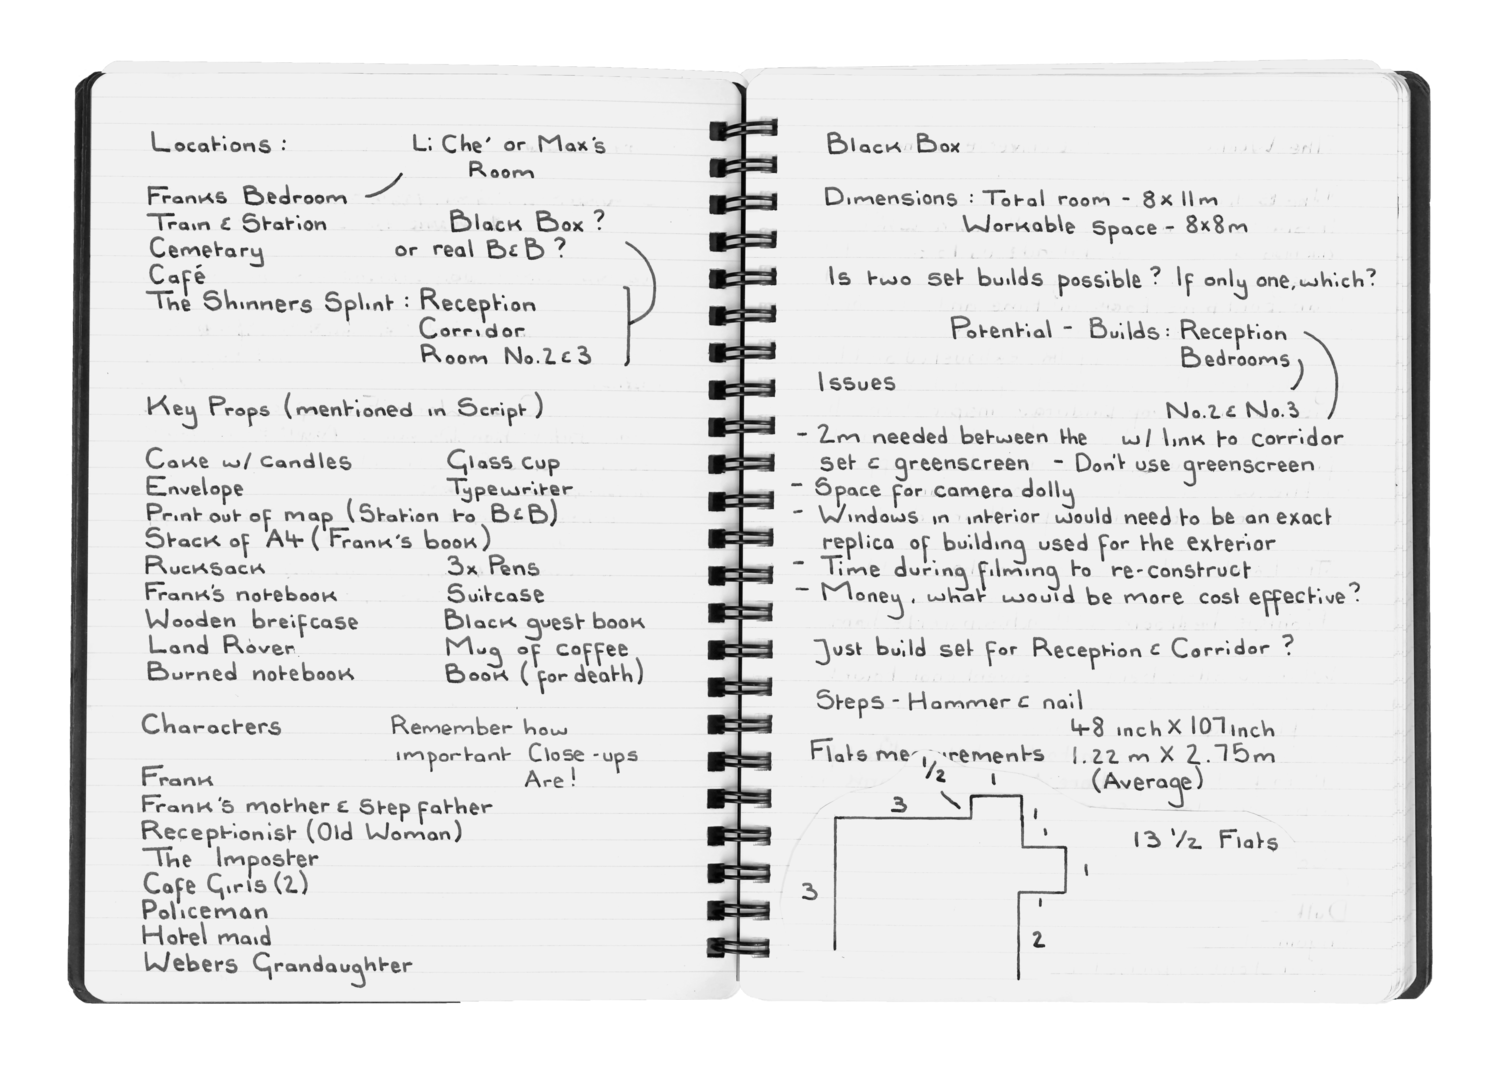 Locations :
Li Che' or Max's
Room
Franks Bedroom
Train & Station
Black Box ?
Cemetary
or real B&B ?
Café
The Shinners Splint : Reception
Corridor
Room No.2 & 3
Key Props (mentioned in Script)
Cake w/ candles
Glass cup
Envelope
Typewriter
Print out of map (Station to B&B)
Stack of A4 (Frank's book)
Rucksack
3x Pens
Frank's notebook
Suitcase
Wooden breifcase
Black guest book
Land Rover
Mug of coffee
Burned notebook
Book (for death)
Characters
Remember how
important Close-ups
Are!
Frank
Frank's mother & Step father
Receptionist (Old Woman)
The Imposter
Cafe Girls (2)
Policeman
Hotel maid
Webers Grandaughter
Black Box
Dimensions : Total room - 8x11m
Workable Space - 8x8m
Is two set builds possible? If only one, which?
Potential - Builds : Reception
Bedrooms
No.2 & No.3
w/ link to corridor
Issues
- 2m needed between the
set & greenscreen - Don't use greenscreen
- Space for camera dolly
- Windows in interior would need to be an exact
replica of building used for the exterior
- Time during filming to re-construct
- Money, what would be more cost effective?
Just build set for Reception & Corridor ?
Steps - Hammer & nail
48 inch X 107inch
Flats me
rements
1.22 m X 2.75m
(Average)
1/2
1
3
1
1
13 1/2 Flats
1
3
1
2